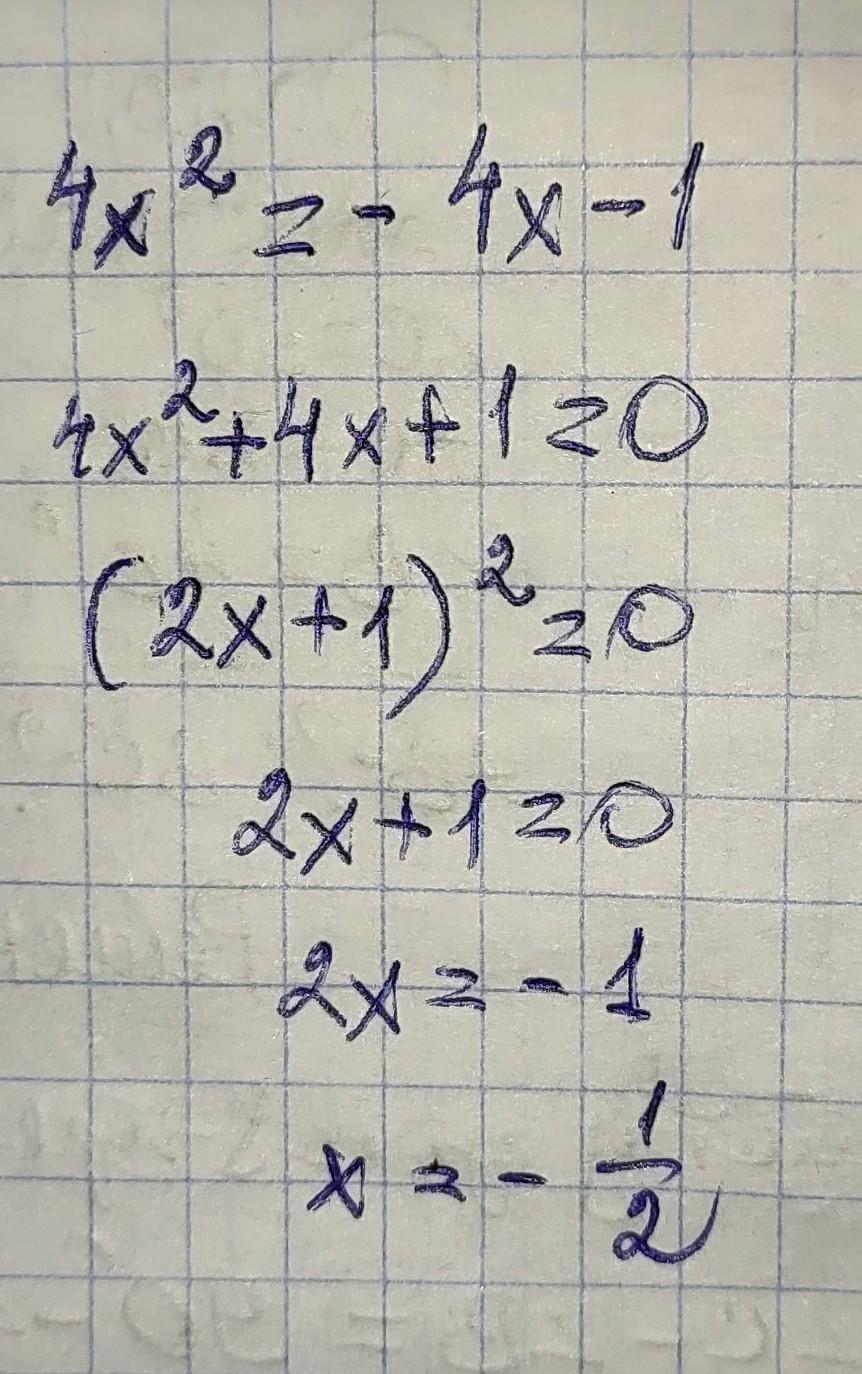 4x² = - 4x - 1
4x² + 4x + 1 = 0
(2x + 1)² = 0
2x + 1 = 0
2x = - 1
x = - 1/2